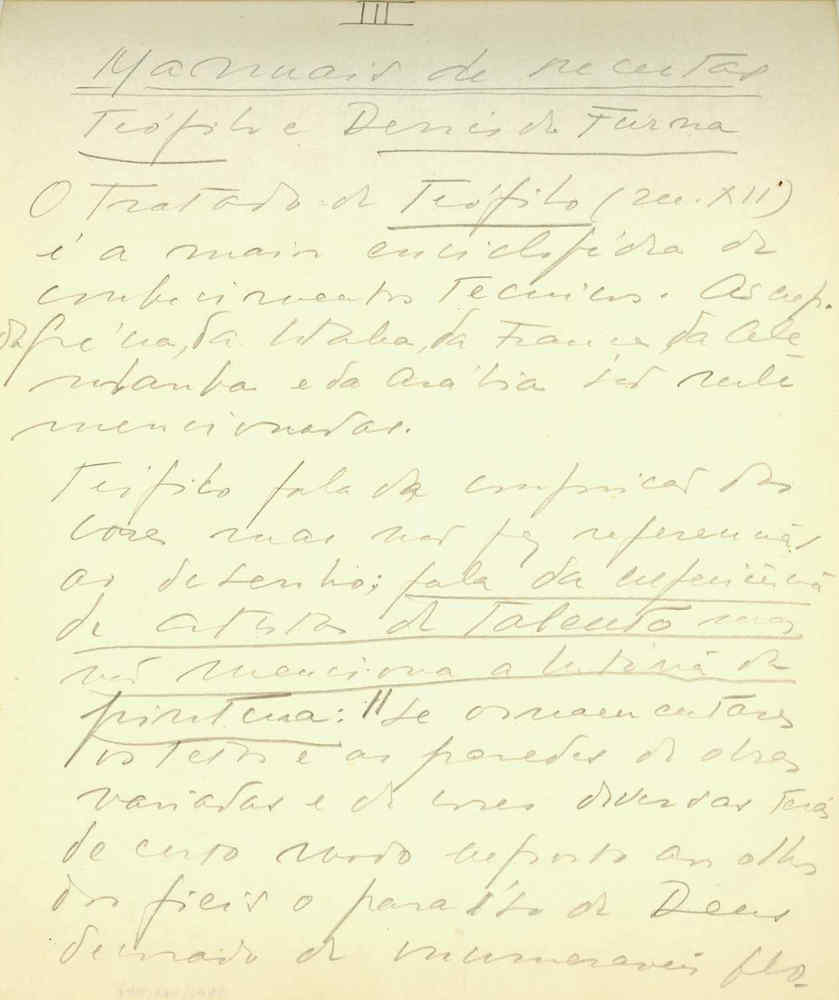 III
Manuais de receitas
Teófilo e Denis da Furna
O Tratado de Teófilo (sec. XII)
é a maior enciclopédia de
conhecimentos tecnicos. As exp.
da Grécia, da Italia, da França, da Ale
manha e da Arábia são nele
mencionadas.
Teófilo fala da composição das
cores mas não faz referencias
ao desenho; fala da experiência
de artistas de talento mas
não menciona a historia da
pintura: "Se ornamentares
os tetos e as paredes de obras
variadas e de cores diversas terás
de certo modo exposto aos olhos
dos fieis o paraíso de Deus
decorado de inumeraveis flo